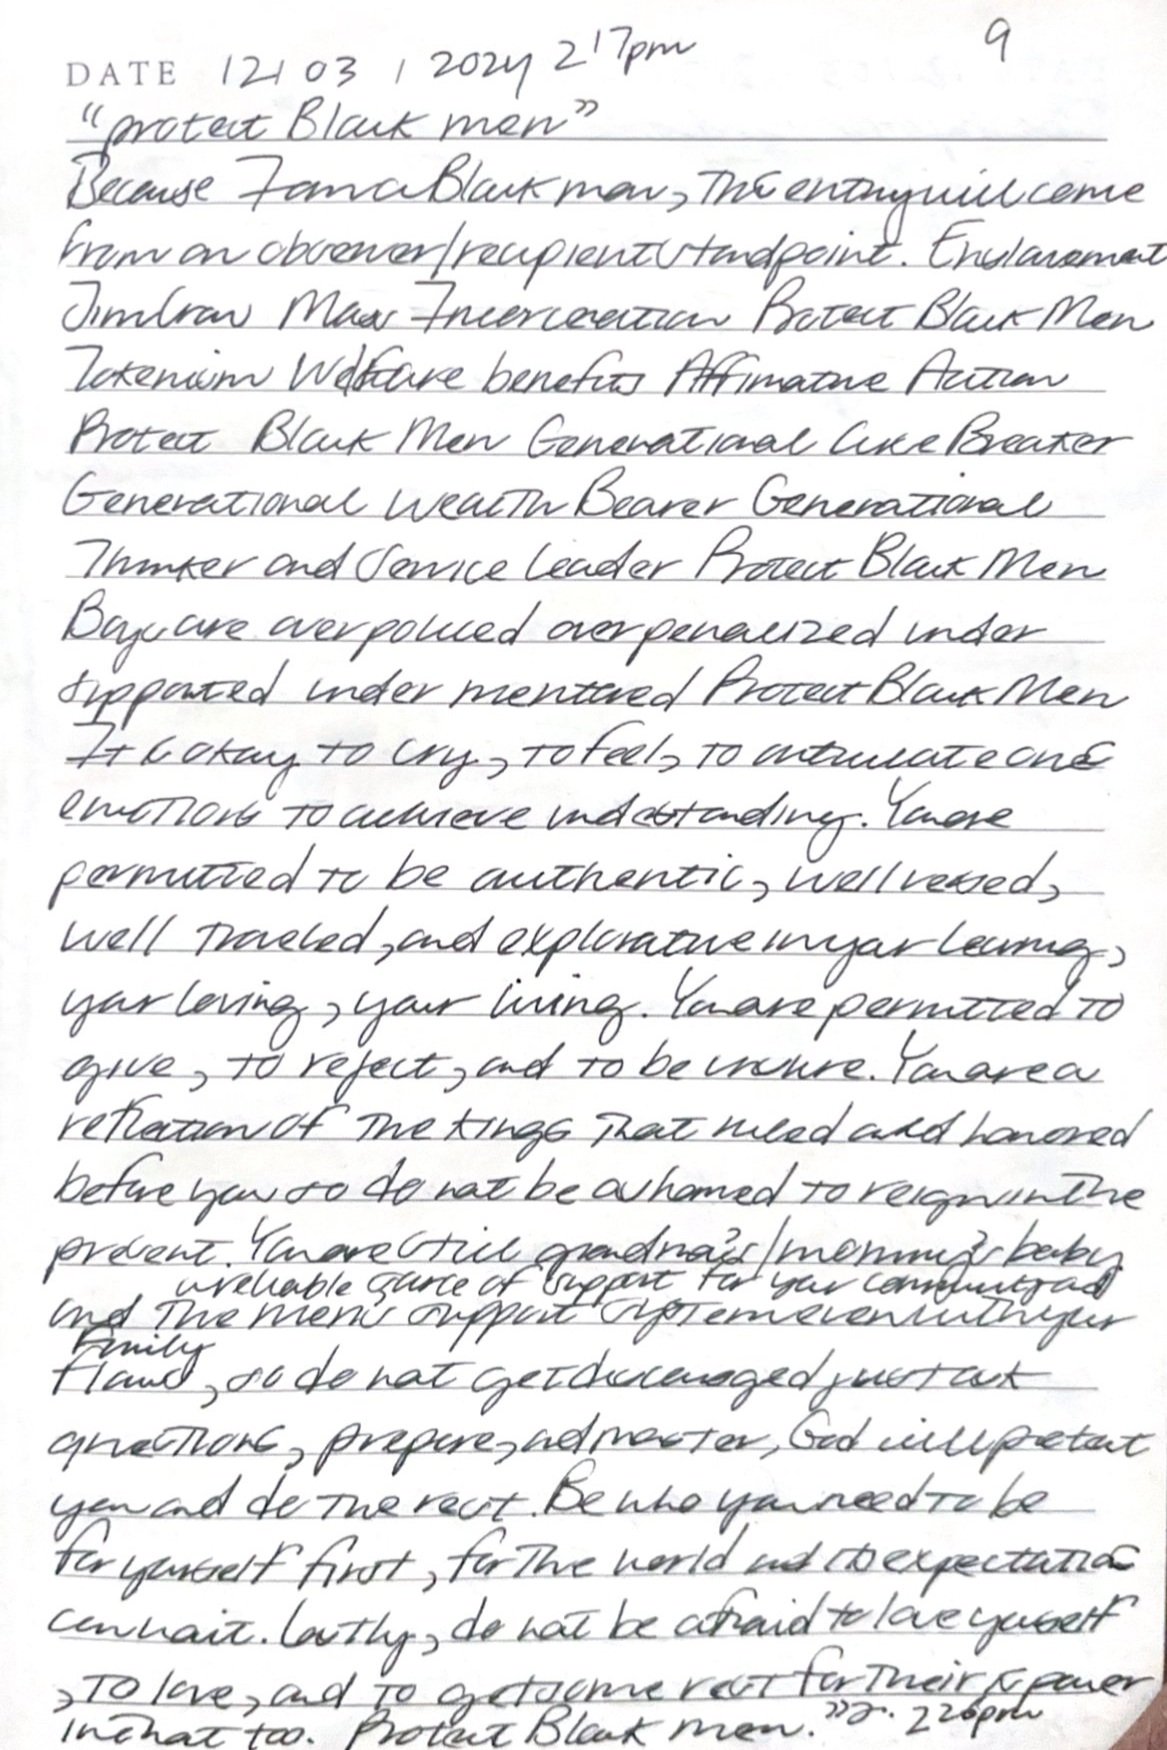 9
DATE 12 / 03 / 2024 2:17pm
"protect Black men"
Because I am a Black man, this entry will come
from an observer/recipient standpoint. Enslavement
Jim Crow Mass Incarceration Protect Black Men
Tokenism Welfare benefits Affirmative Action
Protect Black Men Generational Curse Breaker
Generational Wealth Bearer Generational
Thinker and Service Leader Protect Black Men
Boys are overpoliced overpenalized under
supported under mentored Protect Black Men
It is okay to cry, to feel, to articulate ones
emotions to achieve understanding. You are
permitted to be authentic, well versed,
well traveled, and explorative in your learning,
your loving, your living. You are permitted to
give, to reject, and to be unsure. You are a
reflection of the kings that ruled and honored
before you so do not be ashamed to reign in the
present. You are still grandma's/mommy's baby
a reliable source of support for your community and
and the men's support system even with your
Family
flaws, so do not get discouraged just ask
questions, prepare, and master, God will protect
you and do the rest. Be who you need to be
for yourself first, for the world and its expectations
can wait. Lastly, do not be afraid to love yourself
, to love, and to get some rest for their is power
in that too. Protect Black men." 2:26pm